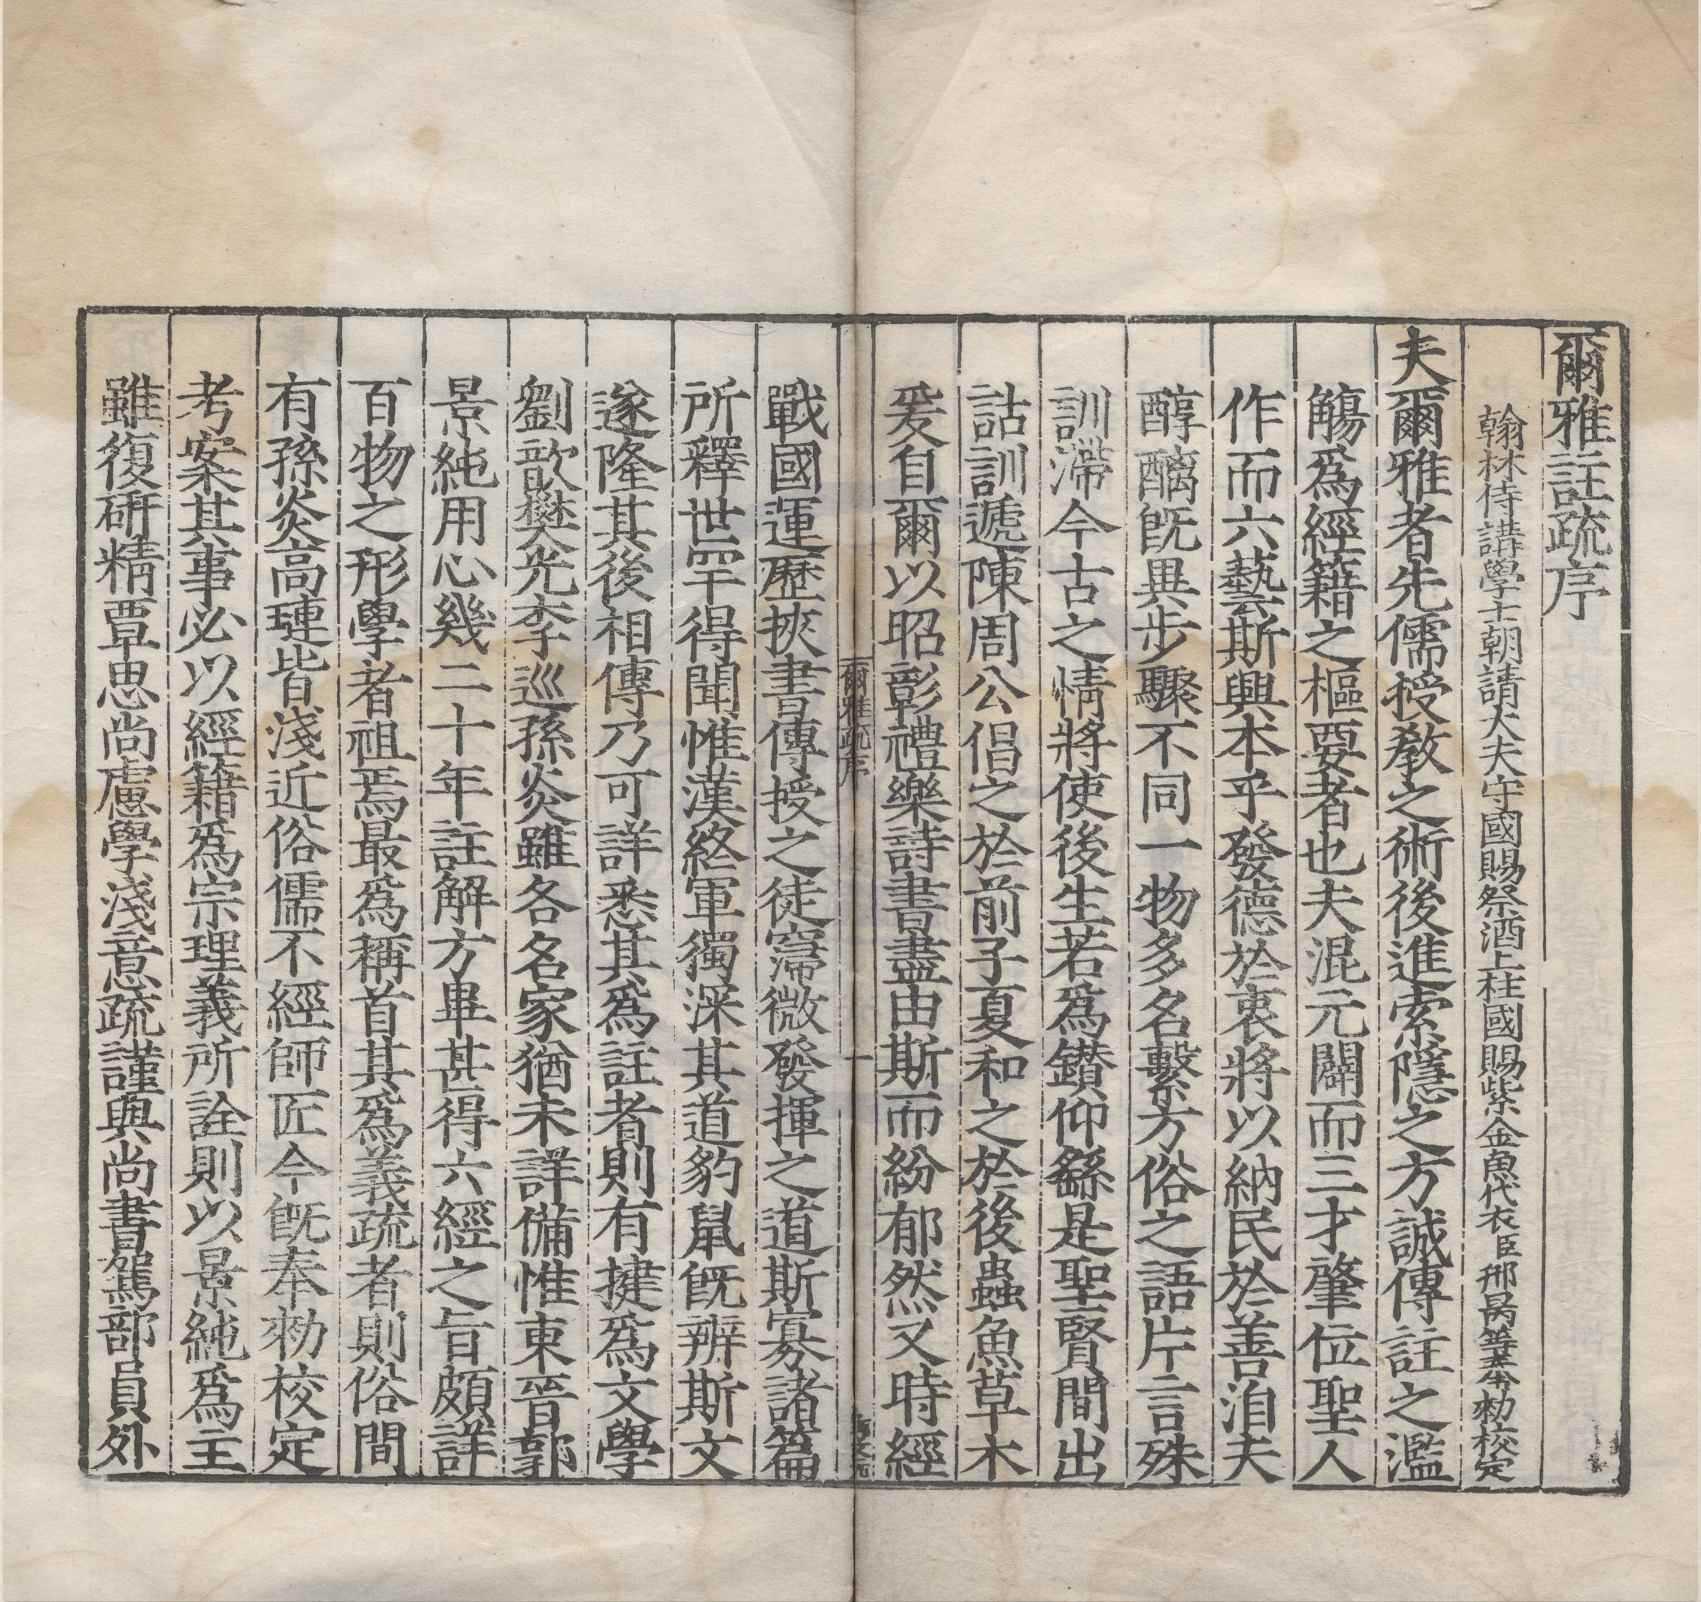 爾雅註疏序
翰林侍講學士朝請大夫守國子祭酒上柱國賜紫金魚袋臣邢昺等奉勑校定
夫爾雅者先儒授教之術後進索隱之方誠傳註之濫
觴爲經籍之樞要者也夫混元闢而三才肇位聖人
作而六藝斯興本乎發德於衷將以納民於善洎夫
醇醨旣異步驟不同一物多名繫方俗之語片言殊
訓滯今古之情將使後生若爲鑽仰繇是聖賢間出
詁訓遞陳周公倡之於前子夏和之於後蟲魚草木
爰自爾以昭彰禮樂詩書盡由斯而紛郁然又時經
爾雅疏序
一
戰國運歷挾書傳授之徒寖微發揮之道斯寡諸篇
所釋世罕得聞惟漢終軍獨深其道豹鼠旣辨斯文
遂隆其後相傳乃可詳悉其爲註者則有犍爲文學
劉歆樊光李巡孫炎雖各名家猶未詳備惟東晉郭
景純用心幾二十年註解方畢甚得六經之旨頗詳
百物之形學者祖焉最爲稱首其爲義疏者則俗間
有孫炎高璉皆淺近俗儒不經師匠今旣奉勑校定
考案其事必以經籍爲宗理義所詮則以景純爲主
雖復硏精覃思尚慮學淺意疏謹與尚書駕部員外